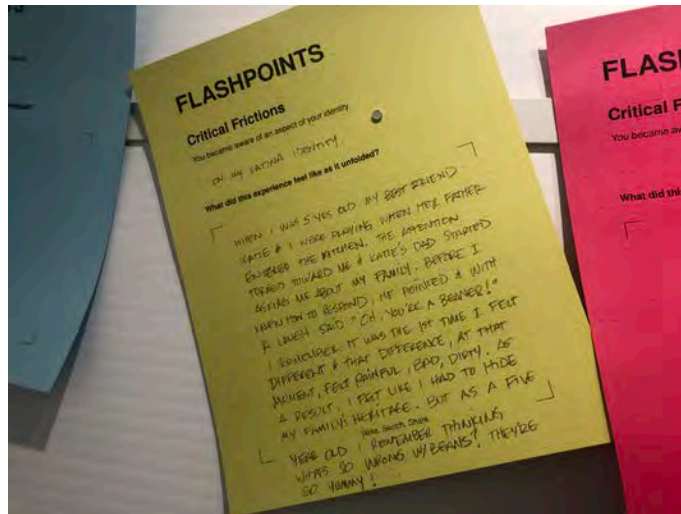 FLASHPOINTS
Critical Frictions
You became aware of an aspect of your identity
ON MY LATINA IDENTITY.
What did this experience feel like as it unfolded?
WHEN I WAS 5 YRS OLD MY BEST FRIEND
KATIE & I WERE PLAYING WHEN HER FATHER
ENTERED THE KITCHEN. THE ATTENTION
TURNED TOWARD ME & KATIE'S DAD STARTED
ASKING ME ABOUT MY FAMILY. BEFORE I
KNEW HOW TO RESPOND, HE POINTED & WITH
A LAUGH SAID "OH, YOU'RE A BEANER!"
I REMEMBER IT WAS THE 1ST TIME I FELT
DIFFERENT & THAT DIFFERENCE, AT THAT
MOMENT, FELT PAINFUL, BAD, DIRTY. AS
A RESULT, I FELT LIKE I HAD TO HIDE
MY FAMILY'S HERITAGE. BUT AS A FIVE
YEAR OLD, I REMEMBER THINKING,
WHATS SO WRONG W/BEANS? THEY'RE
SO YUMMY!
FLAS
Critical F
You became aw
What did thi